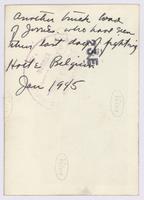 Another truck load
of Jerries. who have seen
their last day of fighting
Hotte Belgium.
Jan 1945